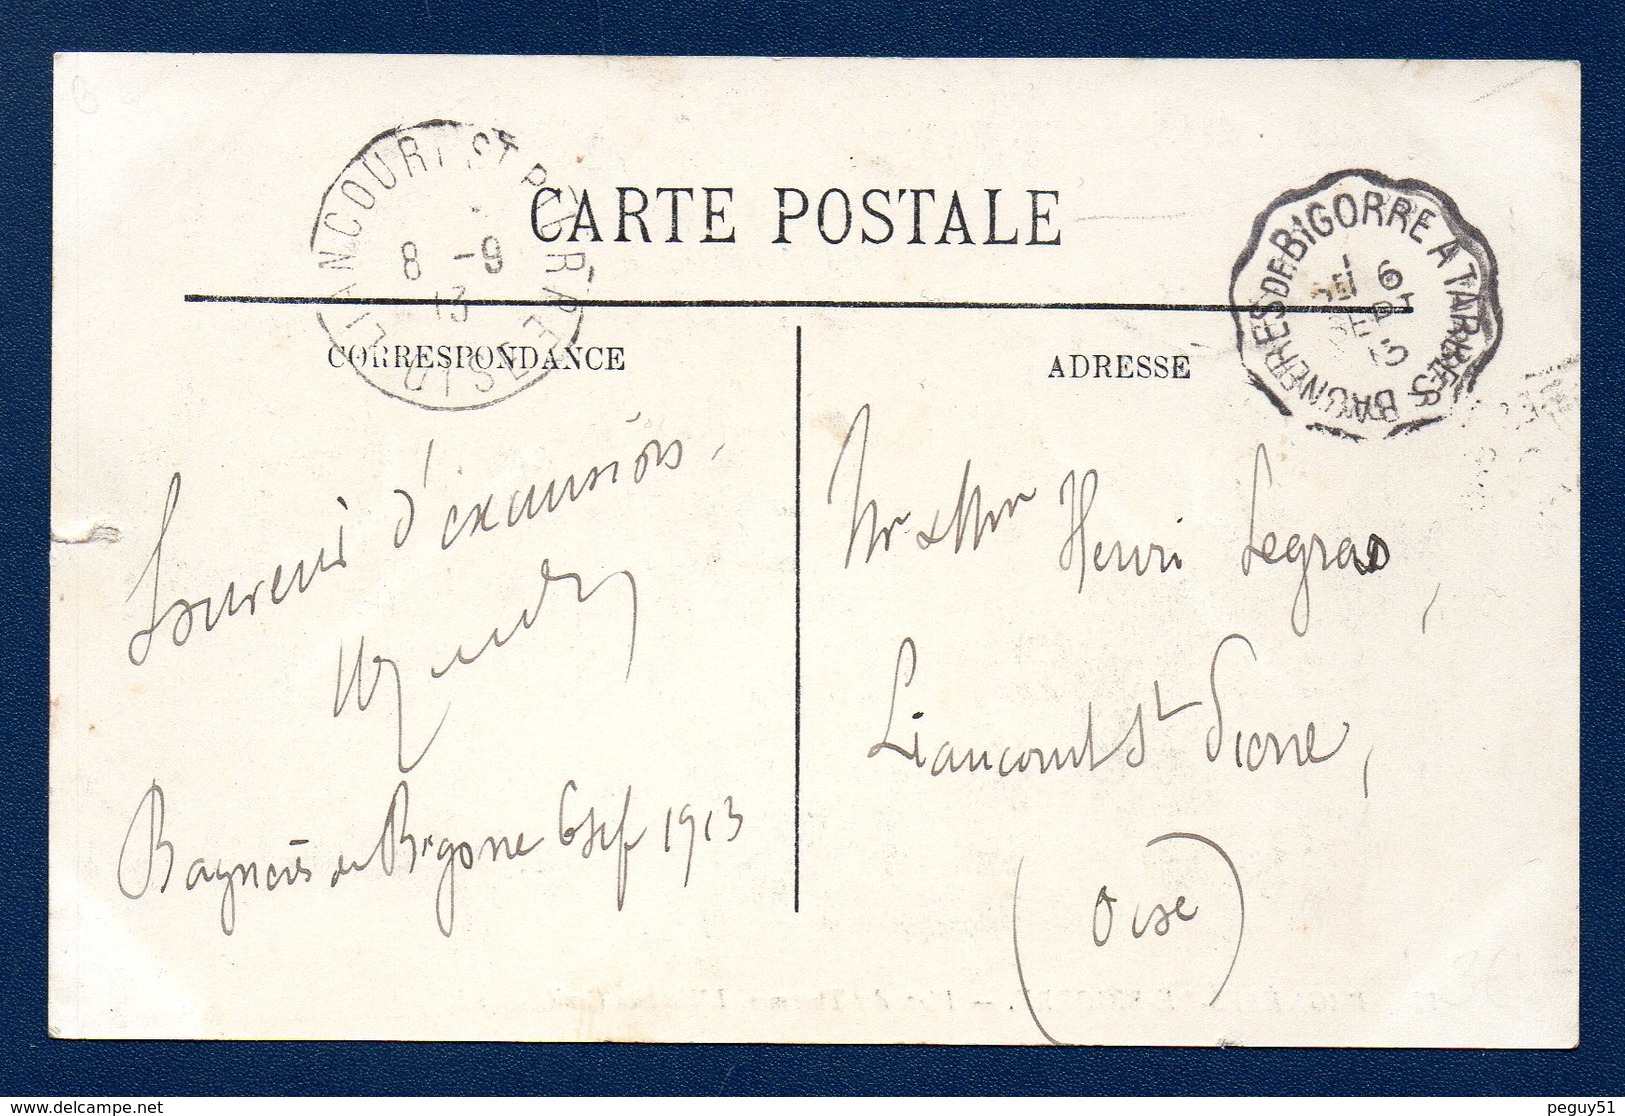 LIANCOURT ST PIERRE
8 -9
13
OISE
CARTE POSTALE
BAGNERES DE BIGORRE A TARBES
6
SEPT
13
CORRESPONDANCE
ADRESSE
Souvenir d'excursions.
Bagnères de Bigorre 6 sept 1913
Mr & Mme Henri Legras,
Liancourt St Pierre,
(Oise)
peguy51